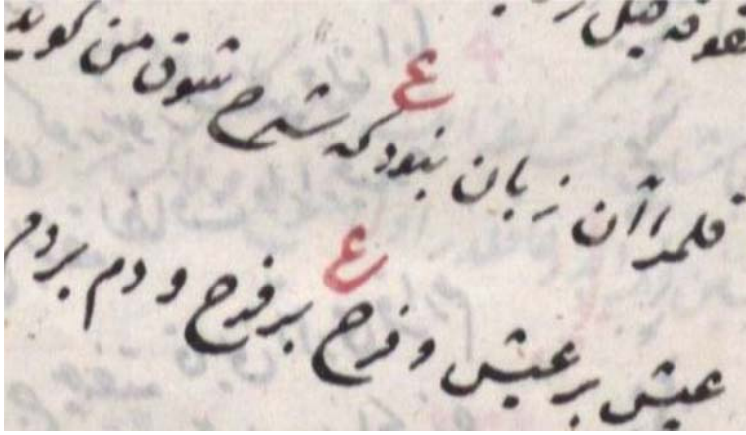 ع
قلمرا آن زبان نبود که شرح شوق من گوید
ع
عیش بر عیش و فرح بر فرح و دم بر دم